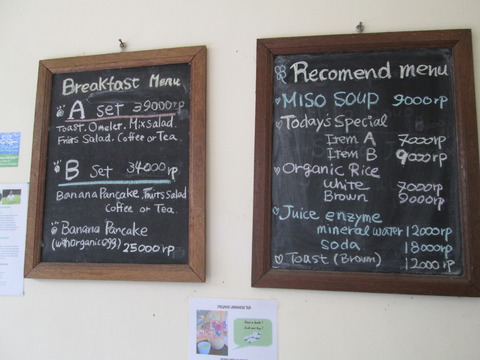 Breakfast Menu
A set 39000rp
Toast. Omelet. Mix salad.
Fruits Salad. Coffee or Tea.
B set 34000 rp
Banana Pancake, Fruits Salad
Coffee or Tea.
Banana Pancake
(with organic egg) 25000 rp
Recomend menu
MISO SOUP 9000rp
Today's Special
Item A 7000rp
Item B 9000rp
Organic Rice
White 7000rp
Brown 9000rp
Juice enzyme
mineral water 12000rp
soda 18000rp
Toast (Brown) 12000rp